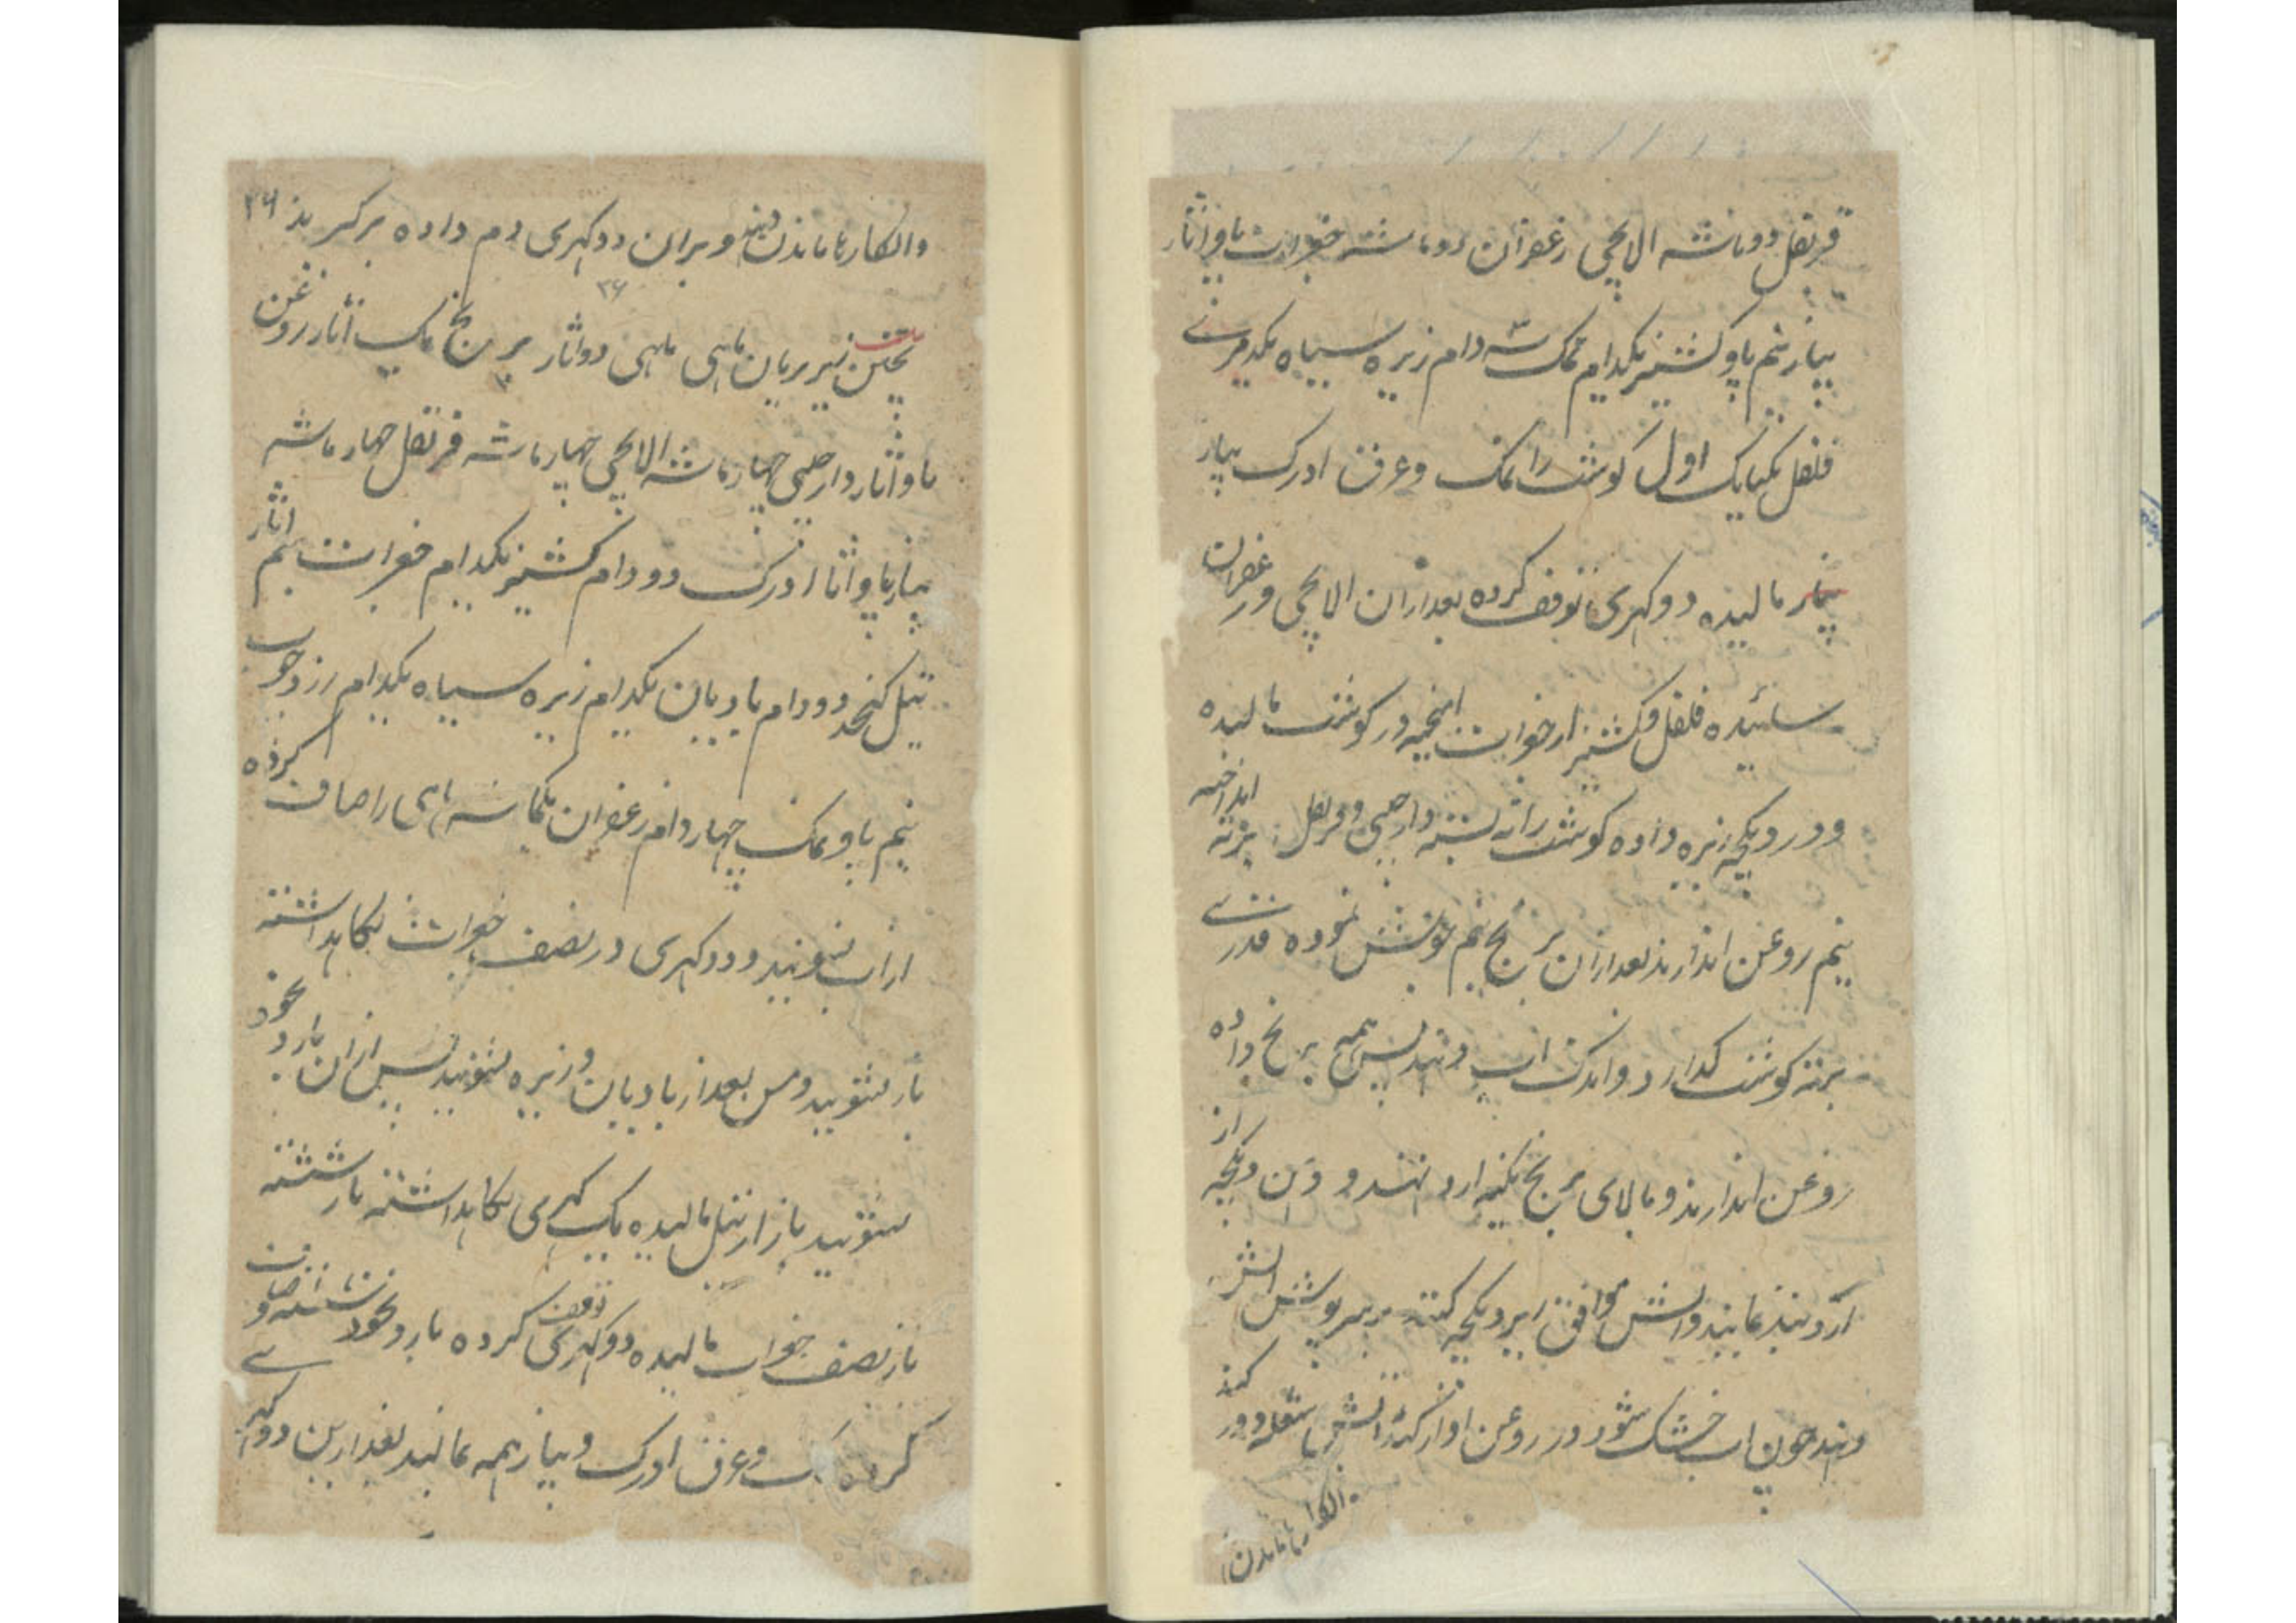 قرنفل دو ماشه الایچی زعفران دو ماشه جغرات پاو آثار
پیاز نیم پاو کشنیز یکدام نمک سه دام زیره سیاه یکدمرنے
فلفل یکپایک اول گوشت را نمک و عرق ادرک پیاز
پنیر مالیده دو کهری توقف کرده بعد ازان الایچی و زعفران
سائیده فلفل و کشنیز از جغرات امخیه در کوشت مالیده
و در دیکچه زیره داده کوشت را ته بسته دارچینی و قرنفل انداخته بر ته
نیم روغن اندازند بعد ازان برنج نیم جوش نموده قدرے
بر ته کوشت گذارد و اندک آب دهند پس همه برنج داده
روغن اندازند و بالای برنج تکیه ارد نهند و دهن دیکچه از
ارد بند نمایند و آتش موافق زیر دیکچه کنند بر سرپوش آتش
دهند چون آب خشک شود در روغن آواز کند آتش شعله دور کنند
وانکارها ماندن
وانکارها ماندن دهند و بران دو کهری دم داده برگیرند ۲۶
۲۶
پختن زیر بریان ماهی ماهی دو آثار برنج یک آثار روغن
پاو آثار دارچینی چهار ماشه الایچی چهار ماشه قرنفل چهار ماشه
پیاز پاو آثار ادرک دو دام کشنیز یکدام جغرات نیم آثار
تیل کنجد دو دام بادیان یکدام زیره سیاه یکدام زردچوب
نیم پاو نمک چهار دام زعفران یکماشه ماهی را صاف کرده
از آب بشویند و دو کهری در نصف جغرات نگاهداشته
باز بشویند و من بعد از بادیان و زیره بشویند پس ازان بارد نخود
بشویند باز از تیل مالیده یک کهری نگاهداشته باز شسته
باز نصف جغرات مالیده دو کهری توقف کرده بارد نخود شسته و صاف
کرده نمک و عرق ادرک و پیاز همه بمالند بعد ازین دو کهرے